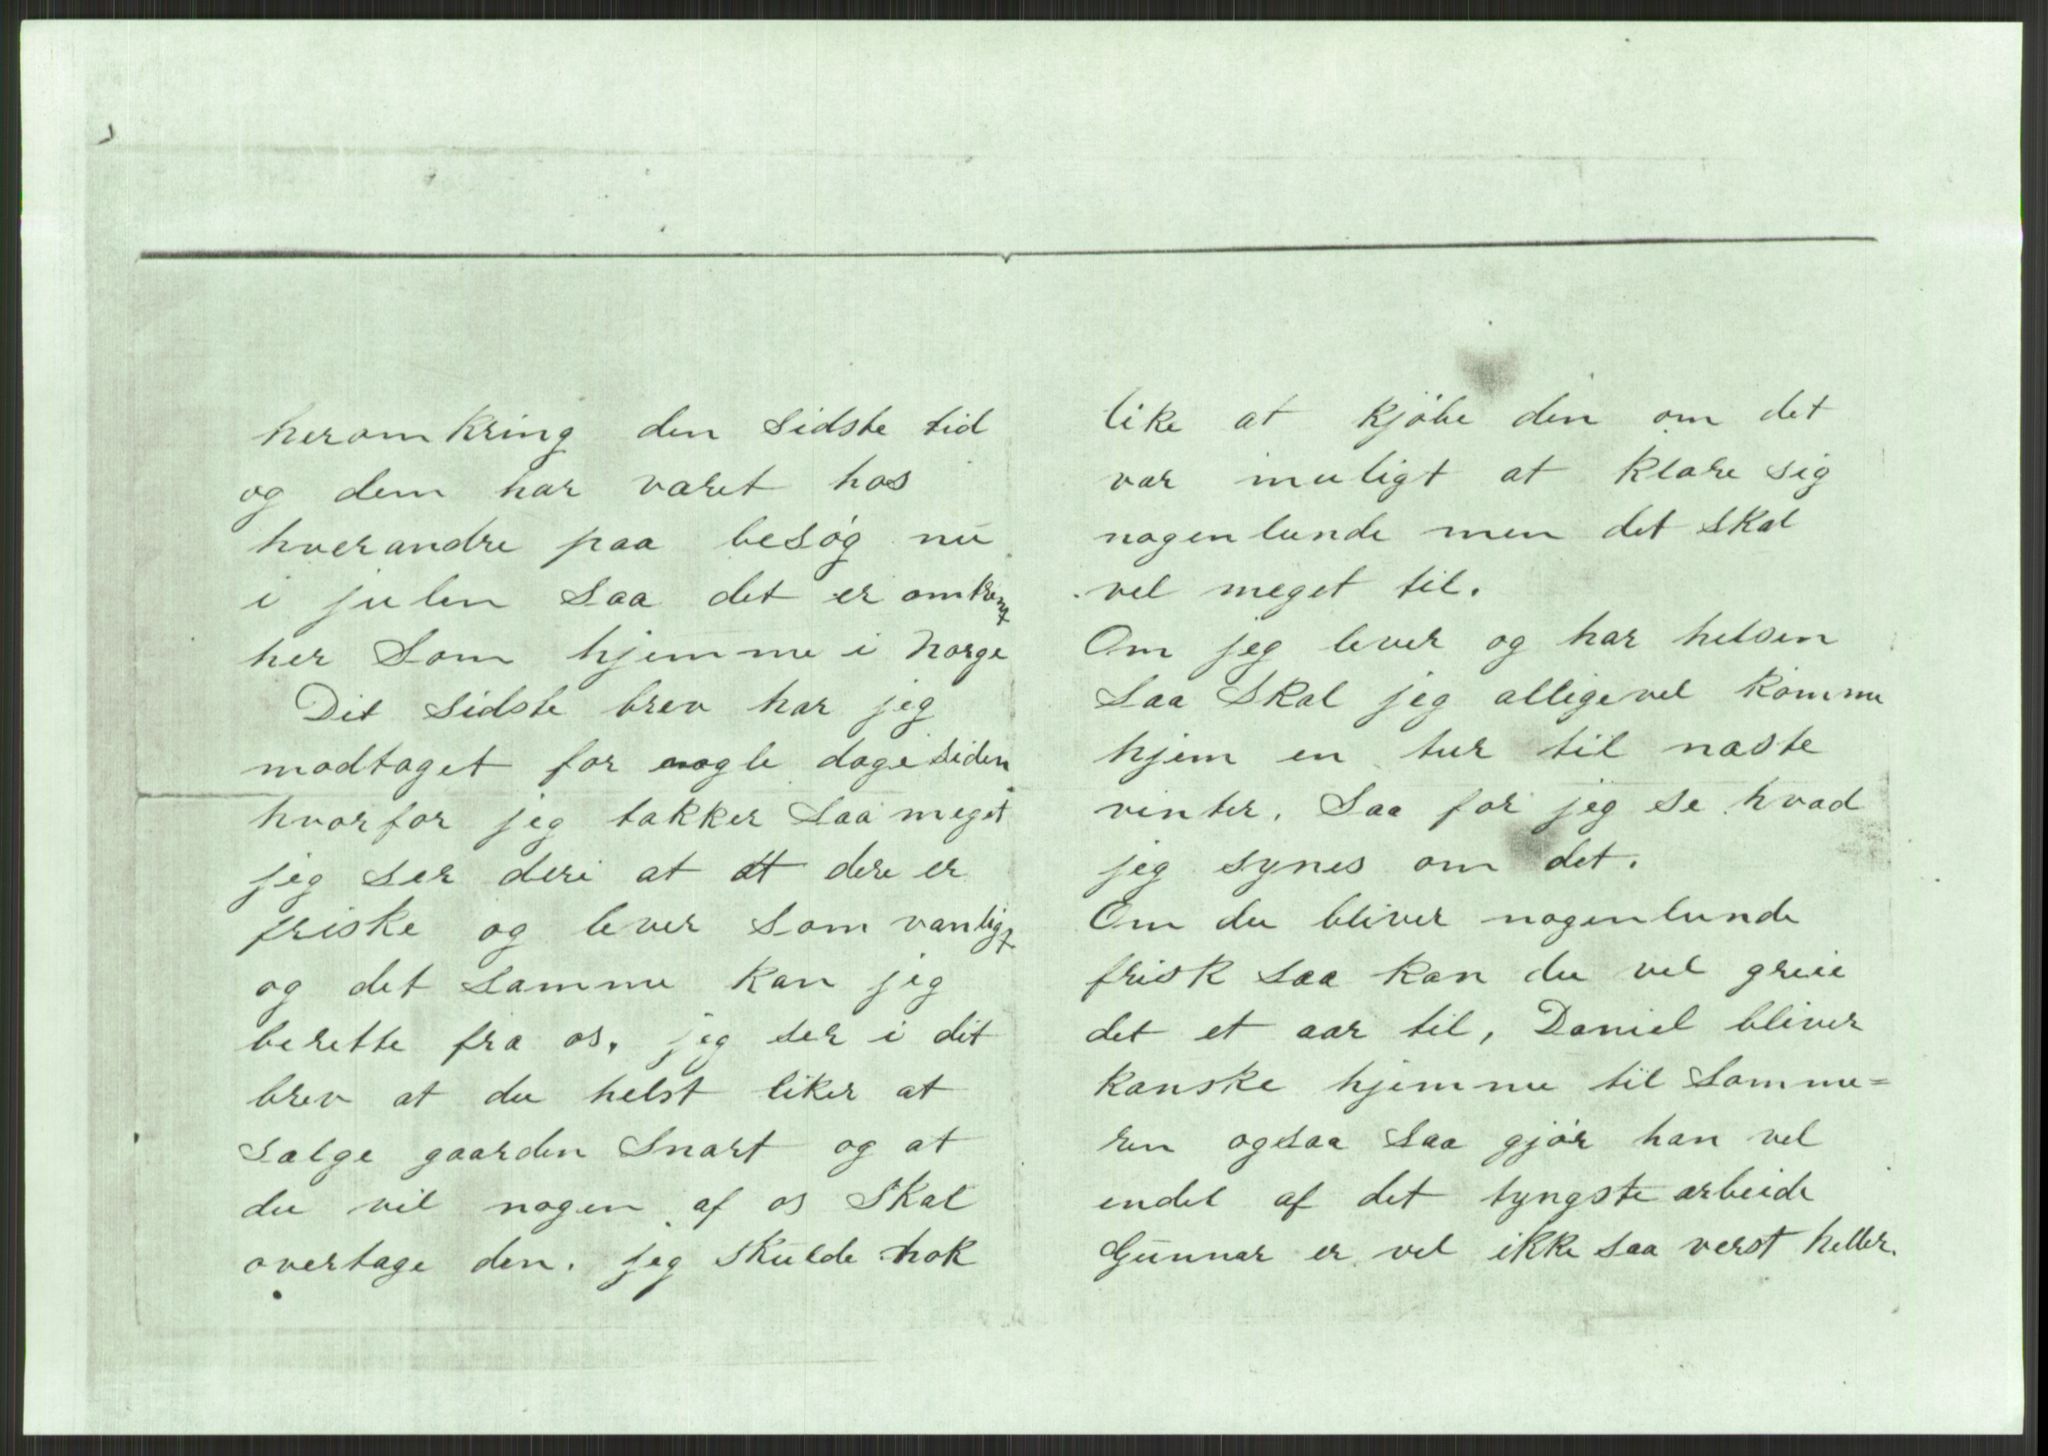 heromkring den sidste tid
og dem har været hos
hverandre paa besøg nu
i julen saa det er omtrent
her som hjemme i Norge
Dit sidste brev har jeg
modtaget for nogle dage siden
hvorfor jeg takker saa meget
jeg ser deri at at dere er
friske og lever som vanligt
og det samme kan jeg
berette fra os. jeg ser i dit
brev at du helst liker at
sælge gaarden snart og at
du vil nogen af os skal
overtage den. jeg skulde nok
like at kjøbe den om det
var muligt at klare sig
nogenlunde men det skal
vel meget til.
Om jeg lever og har helsen
saa skal jeg alligevel komme
hjem en tur til næste
vinter. saa for jeg se hvad
jeg synes om det.
Om du bliver nogenlunde
frisk saa kan du vel greie
det et aar til, Daniel bliver
kanske hjemme til somme=
ren ogsaa saa gjør han vel
endel af det tyngste arbeide
Gunnar er vel ikke saa verst heller.